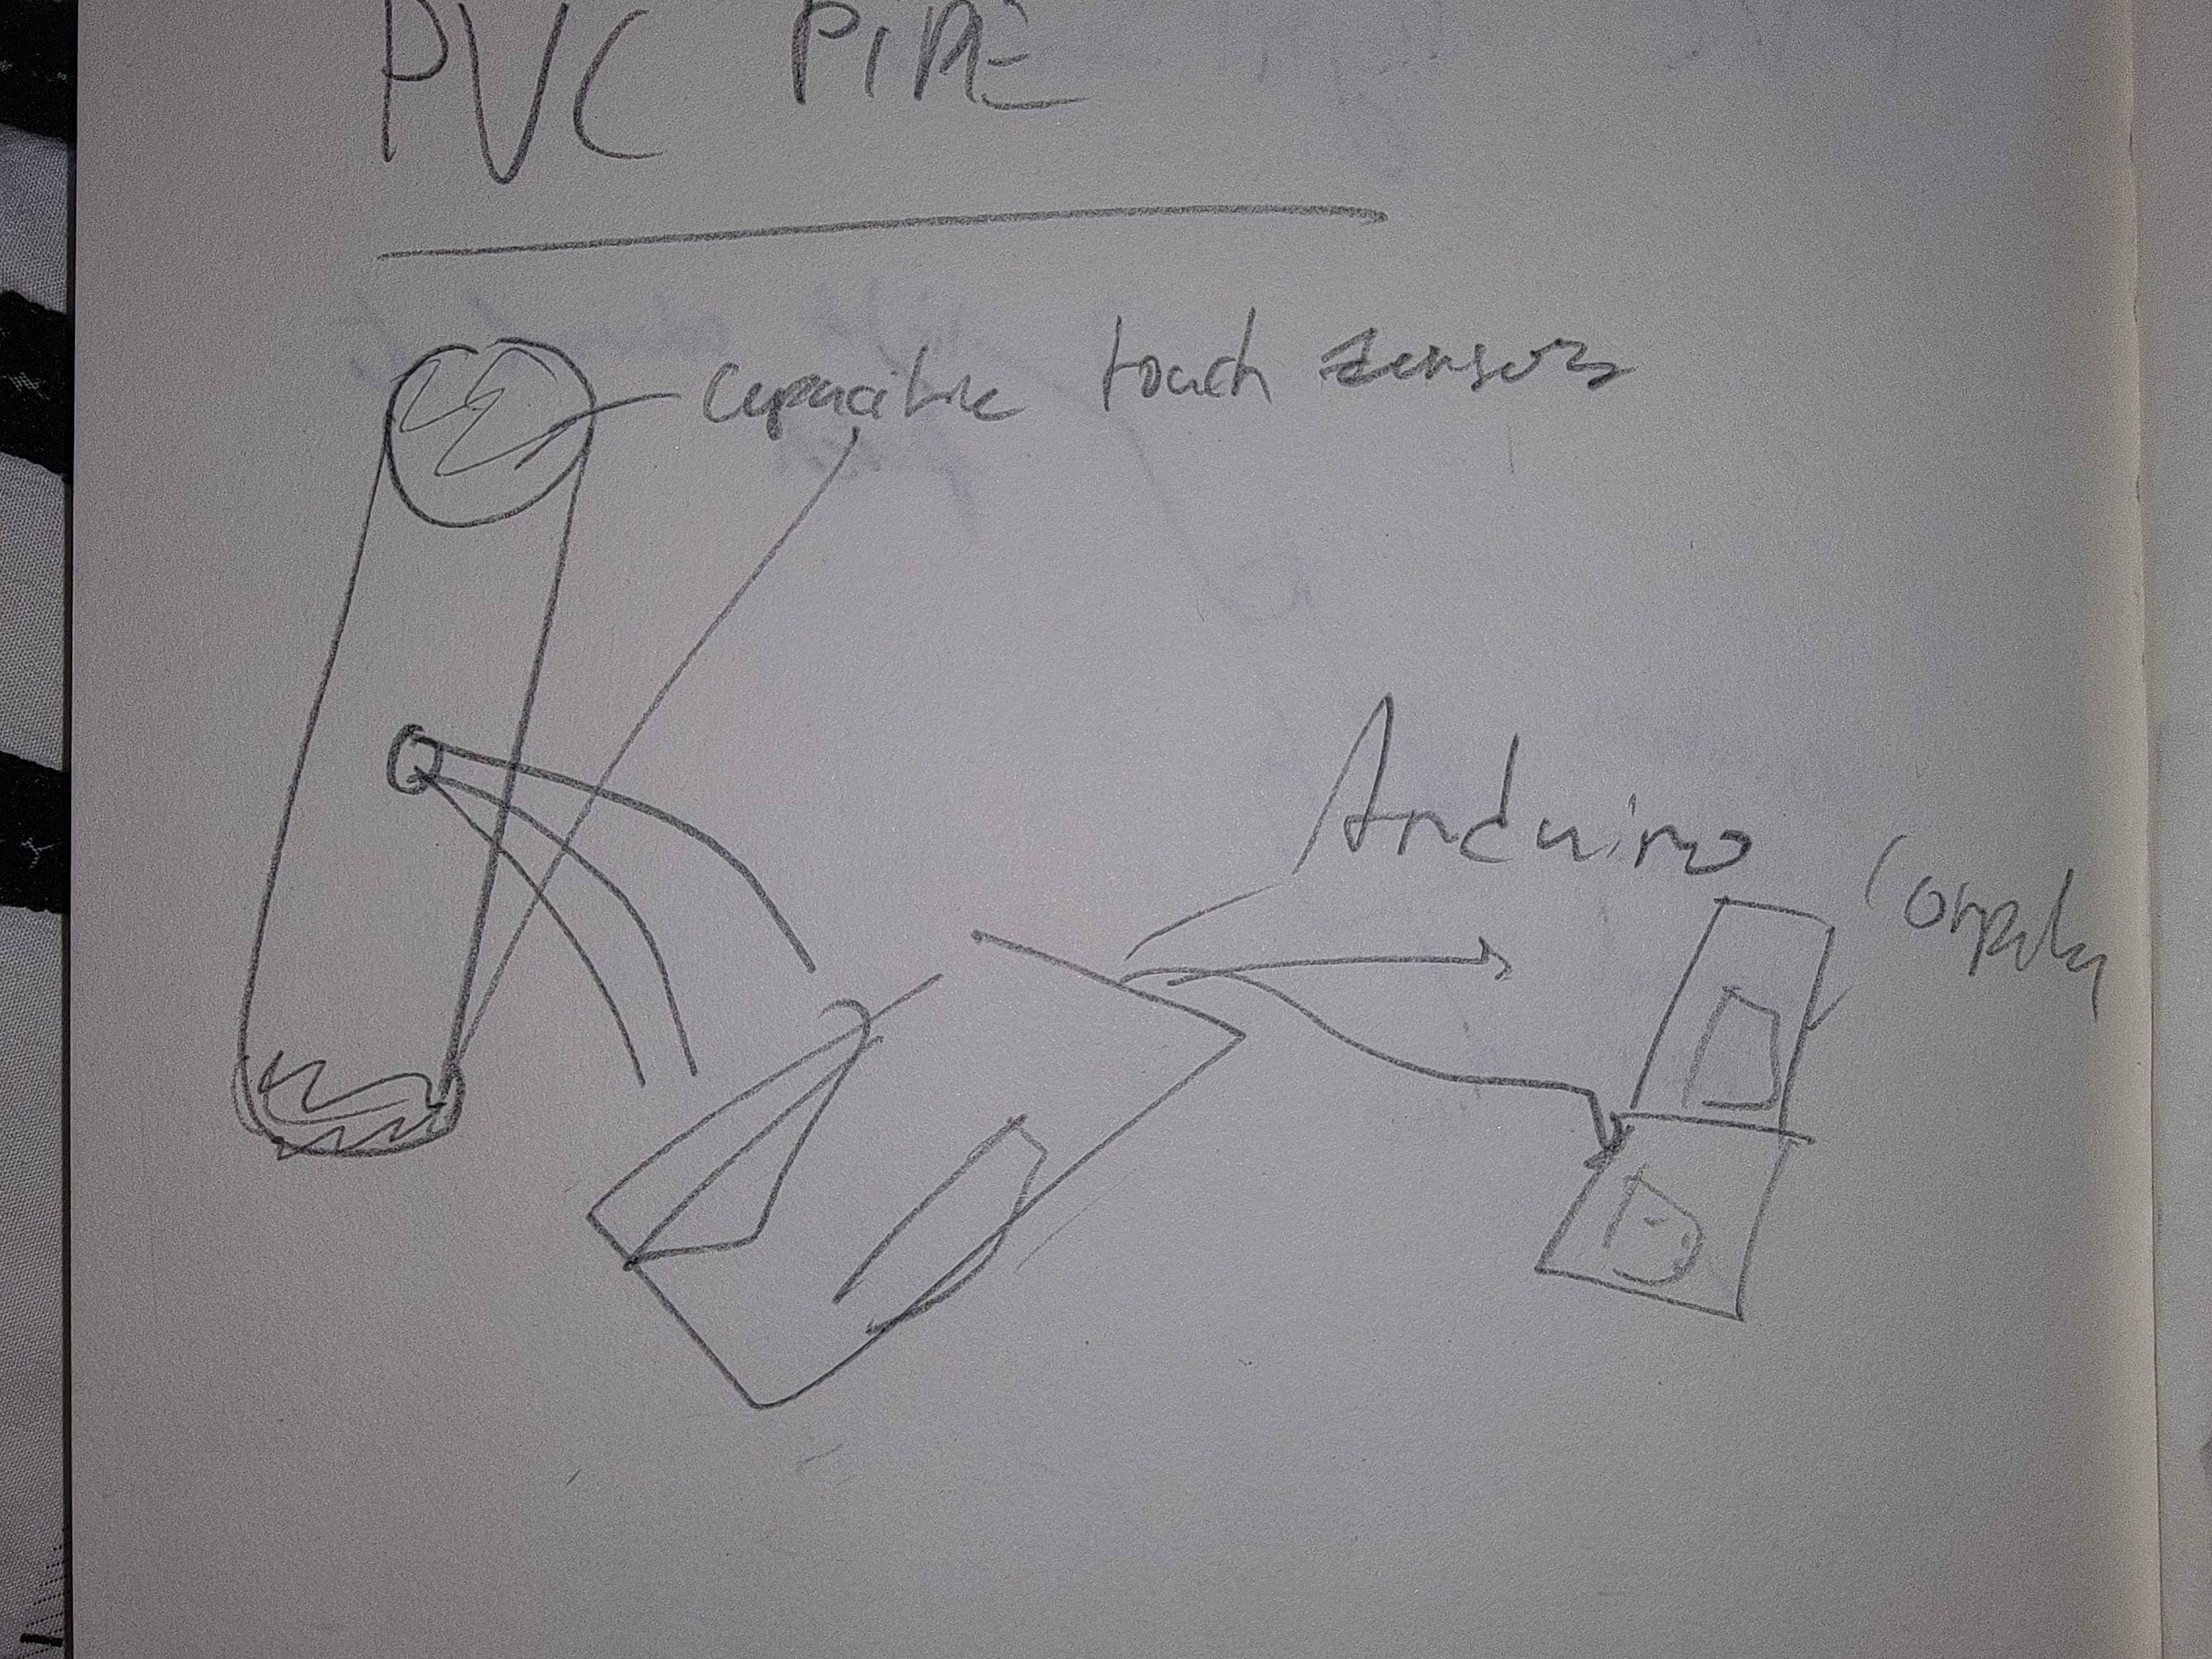 PVC PIPE
Capacitive touch sensors
Arduino
Computer